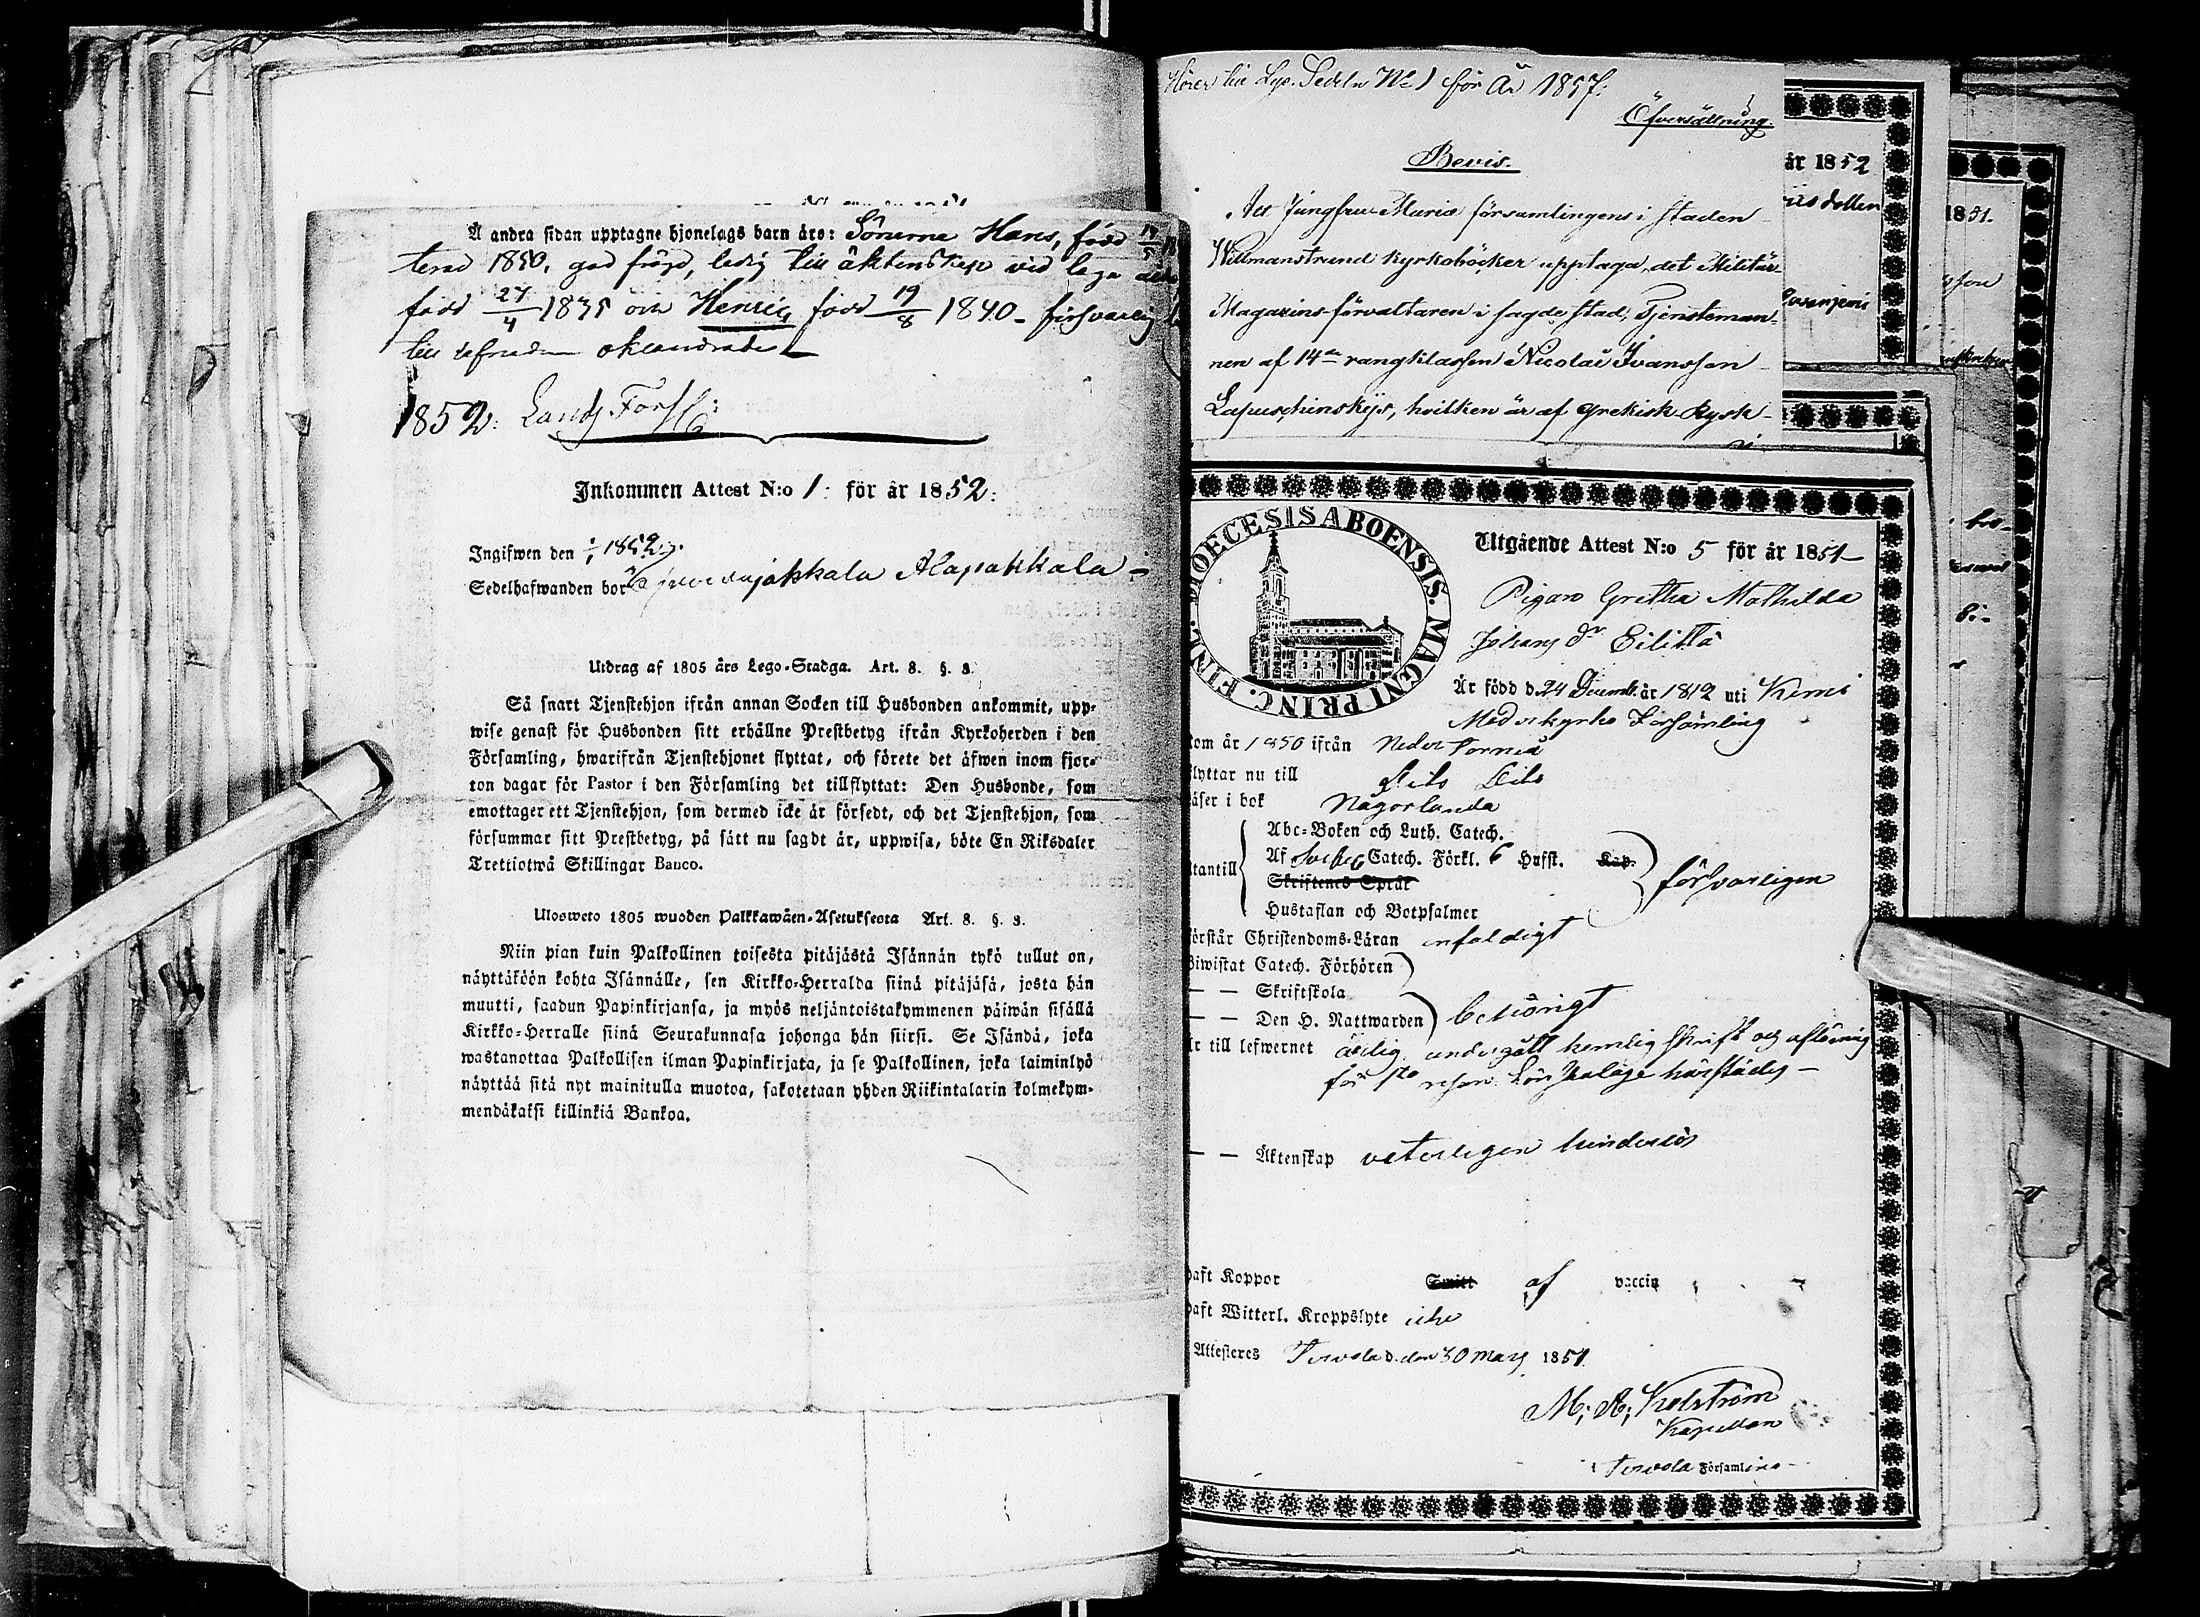 Å andra sidan upptagne hjonelags barn äro: Sönerne Hans, född 14/5 18
1850, god frägd, ledig till äktenskap vid laga
född 27/4 1835 och Henric, född 19/8 1840 - försvarlig
till lefnaden oklandrade
1852:
Inkommen Attest N:o 1: för år 1852:
Ingifwen den 1/1 1852.
Sedelhafwanden bor Alapakkala -
Utdrag af 1805 års Lego-Stadga. Art. 8. §. 3.
Så snart Tjenstehjon ifrån annan Socken till Husbonden ankommit, upp-
wise genast för Husbonden sitt erhållne Prestbetyg ifrån Kyrkoherden i den
Församling, hwarifrån Tjenstehjonet flyttat, och förete det äfwen inom fjor-
ton dagar för Pastor i den Församling det tillflyttat: Den Husbonde, som
emottager ett Tjenstehjon, som dermed icke är försedt, och det Tjenstehjon, som
försummar sitt Prestbetyg, på sätt nu sagdt är, uppwisa, böte En Riksdaler
Trettiotwå Skillingar Banco.
Ulosweto 1805 wuoden Palkkawäen-Asetuksesta Art. 8. §. 3.
Niin pian kuin Palkollinen toisesta pitäjästä Isännän tykö tullut on,
näyttäköön kohta Isännälle, sen Kirkko-Herralda siinä pitäjäsä, josta hän
muutti, saadun Papinkirjansa, ja myös neljäntoistakymmenen päiwän sisällä
Kirkko-Herralle siinä Seurakunnasa johonga hän siirsi. Se Isändä, joka
wastanottaa Palkollisen ilman Papinkirjata, ja se Palkollinen, joka laiminlyö
näyttää sitä nyt mainitulla muotoa, sakotetaan yhden Riikintalarin kolmekym-
mendäkaksi killinkiä Bankoa.
Hörer till Lys. Sedeln No 1 för År 1857:
Öfversättning.
Bevis.
Att Jungfru Mariæ församlingens i staden
Willmanstrand kyrkoböcker upptaga, det Militär
Magazins-förvaltaren i sagde stad, Tjensteman-
nen af 14de rangklassen Nicolai Ivansson
Lapuschinskijs, hvilken är af Grekisk-Rysk-
år 1852
1851.
DIOECESIS ABOENSIS. MAGNI PRINC. FINL.
Utgående Attest N:o 5 för år 1851
Pigan Gretha Mathilda
Johans dr Eilittä
Är född d. 24 Decemb. år 1812 uti Kemi
Moderkyrko Församling
kom år 1850 ifrån Neder Torneå
flyttar nu till
läser i bok Någorlunda
Abc-Boken och Luth. Catech.
Af Svebe Catech. Förkl. 6 Hufst. Kap.
ntantill
Skriftenes Språk
försvarligen
Hustaflan och Botpsalmer
förstår Christendoms-Läran enfaldigt
Biwistat Catech. Förhören
— — Skriftskola
— — Den H. Nattwarden
behörigt
är till lefwernet ärlig, undergått hemlig skrift och aflösning
för 1sta resan härstädes -
— — Äktenskap veterligen hinderlös
haft Koppor Smitt af vaccin
haft Witterl. Kroppslyte icke
Attesteres Tervola d. den 30 Mars 1851.
Kapellan
i Tervola Församling